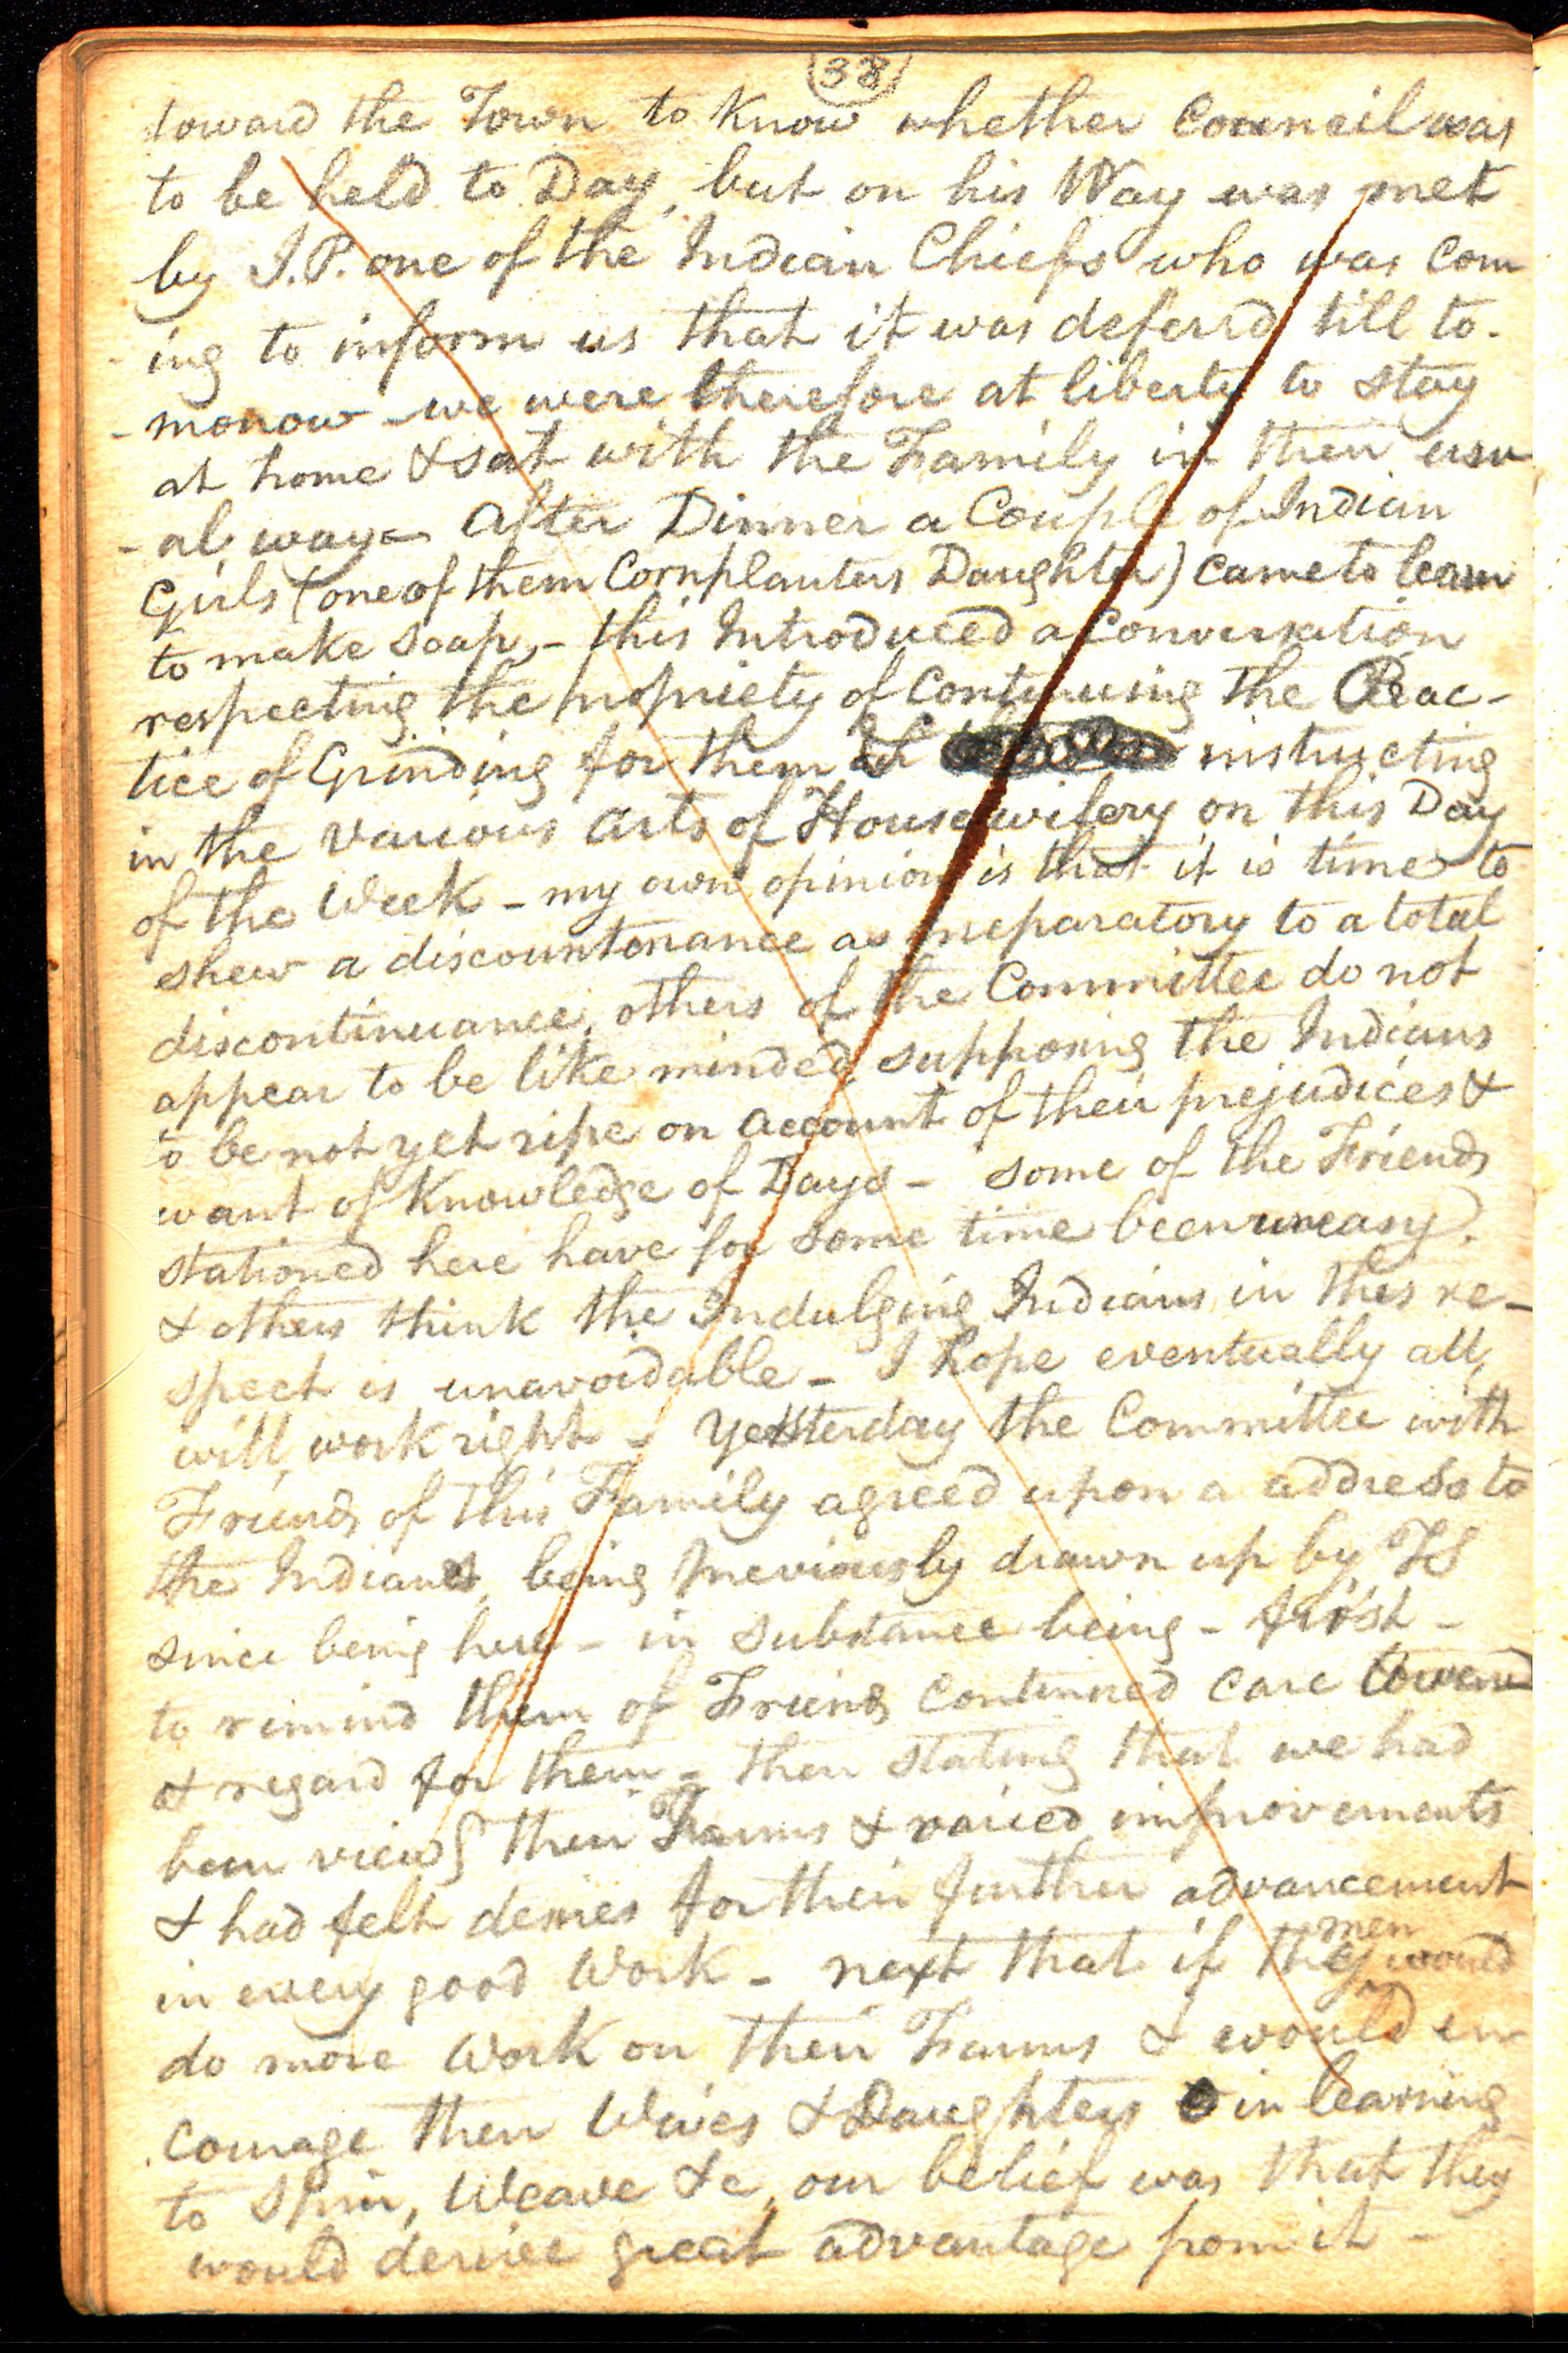 38
toward the Town to Know whether Council was
to be held to Day, but on his Way was met
by J.P. one of the Indian Chiefs who was Com
- ing to inform us that it was deferrd till to-
- morrow - we were therefore at liberty to stay
at home & sat with the Family in their usu
- al way - After Dinner a Couple of Indian
Girls (one of them Cornplanters Daughter) came to learn
to make soap, - this Introduced a Conversation
respecting the propriety of Continuing the Prac-
tice of Grinding for them & instructing
in the various arts of Housewifery on this Day
of the Week - my own opinion is that it is time to
shew a discountenance as preparatory to a total
discontinuance, others of the Committee do not
appear to be like minded, supposing the Indians
to be not yet ripe on account of their prejudices &
want of Knowledge of Days - some of the Friends
stationed here have for some time been uneasy,
& others think the Indulging Indians in this re-
spect is unavoidable - I hope eventually all
will work right - Yesterday the Committee with
Friends of this Family agreed upon a address to
the Indians, being previously drawn up by IS
since being here - in substance being - first -
to remind them of Friends Continued Care toward
& regard for them - then stating that we had
been viewg their Farms & varied improvements
& had felt desires for their further advancement
in every good Work - next that if they men would
do more Work on their Farms & would en
courage their Wives & Daughters in learning
to Spin, Weave &c, our belief was that they
would derive great advantage from it -